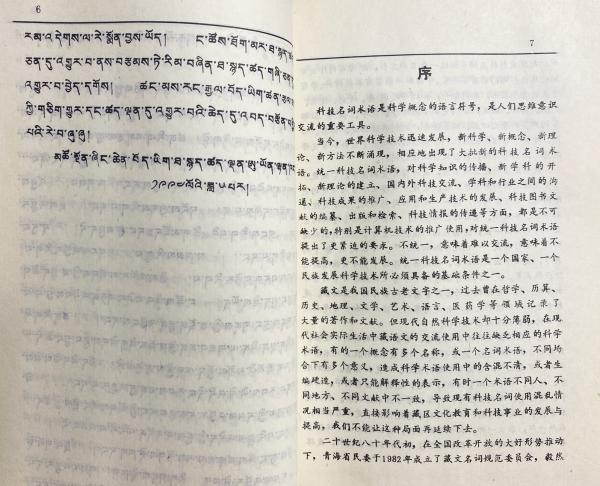 6
རམ་འདེགས་ལ་རེ་སྨོན་བྱས་ཡོད། ང་ཚོས་ཐོག་མར་ཐ་སྙད་
ཅན་དུ་འགྱུར་བ་ནས་བརྩམས་ཏེ་རིམ་བཞིན་ཐ་སྙད་ཚད་གཞི་ཅན་
འགྱུར་བ་བྱེད་དགོས། ཚང་མས་རང་རྒྱལ་བོད་ཡིག་ཚན་རྩལ་
ཀྱི་གཅིག་གྱུར་དང་ཚད་ལྡན་དུ་འགྱུར་བའི་ཆེད་དུ་འབད་བརྩོན་
པའི་རེ་བ་ཞུ།
མཚོ་སྔོན་ཞིང་ཆེན་བོད་ཡིག་ཐ་སྙད་ཚད་ལྡན་ཨུ་ཡོན་ལྷན་
༡༩༩༠ལོའི་ཟླ་༥པར།
7
序
科技名词术语是科学概念的语言符号，是人们思维意识
交流的重要工具。
当今，世界科学技术迅速发展，新科学、新概念、新理
论、新方法不断涌现，相应地出现了大批新的科技名词术
语。统一科技名词术语，对科学知识的传播、新学科的开
拓、新理论的建立、国内外科技交流、学科和行业之间的沟
通、科技成果的推广、应用和生产技术的发展、科技图书文
献的编纂、出版和检索、科技情报的传递等方面，都是不可
缺少的，特别是计算机技术的推广使用，对统一科技名词术语
提出了更紧迫的要求。不统一，意味着难以交流，意味着不
能提高，更不能发展。统一科技名词术语是一个国家、一个
民族发展科学技术所必须具备的基础条件之一。
藏文是我国民族古老文字之一，过去曾在哲学、历算、
历史、地理、文学、艺术、语言、医药学等领域记录了
大量的著作和文献。但现代自然科学技术却十分薄弱，在现
代社会实际生活中藏语文的交流使用中往往缺乏相应的科学
术语，有的一个概念有多个名称，或一个名词术语，不同场
合下有多个意义，造成科学术语使用中的含混不清，或者生
编硬造，或者只能解释性的表示，有时一个术语不同人、不
同地方、不同文献中不一致，导致现有科技名词使用混乱情
况相当严重，直接影响着藏区文化教育和科技事业的发展与
提高，我们不能让这种局面再延续下去。
二十世纪八十年代初，在全国改革开放的大好形势推动
下，青海省民委于1982年成立了藏文名词规范委员会，毅然